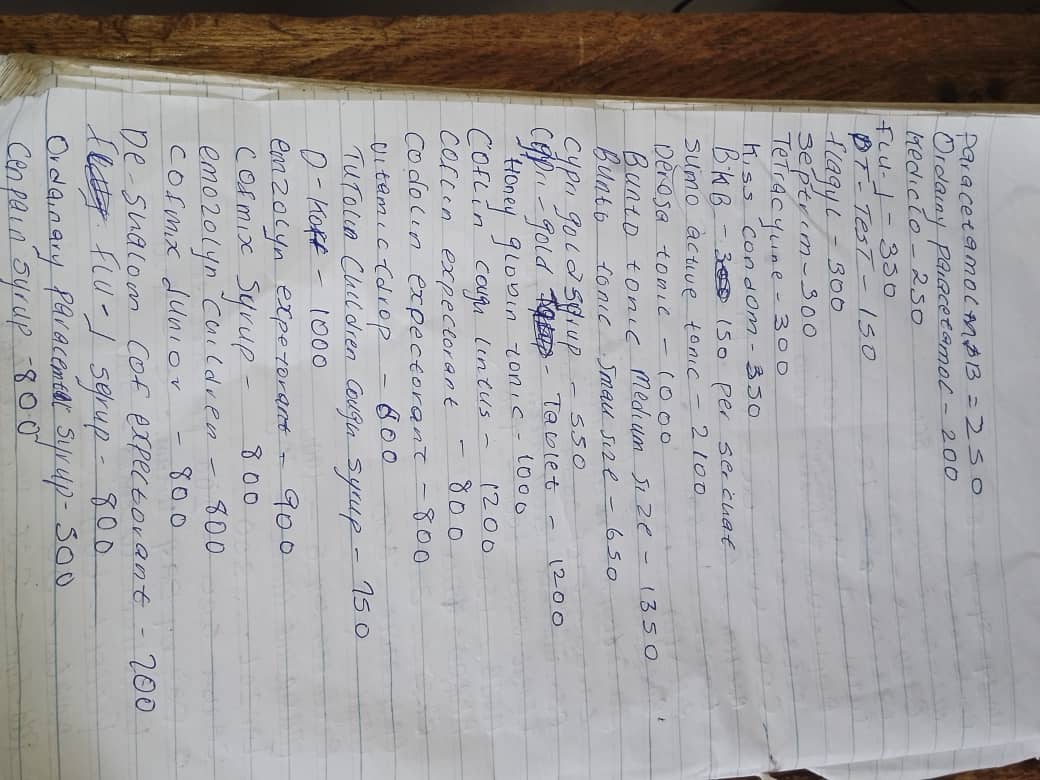 Paracetamol M&B = 250
Ordany paracetamol - 200
Mediclo - 250
Flu-J - 350
BT-TEST - 150
flagyl - 300
Septrim - 300
Tetracyine - 300
Kiss condom - 350
B.K.B - 150 per serchat
Sumo active tonic - 2100
Derosa tonic - 1000
Bunto tonic Medium size - 1350
Bunto tonic small size - 650
Cypri gold syrup - 550
Cypri-gold - Tablet - 1200
Honey globin tonic - 1000
Coflin cough lintus - 1200
Coflin expectorant - 800
Codolin expectorant - 800
vitamic-c drop - 600
Tutolin Children cough syrup - 750
D-koff - 1000
emzolyn expetorant - 900
Cofmix syrup - 800
emozolyn Children - 800
Cofmix Junior - 800
De-Shalom cof expectorant - 700
flu-J syrup - 800
Ordanary Paracemtal syrup - 500
Cenpain syrup - 800